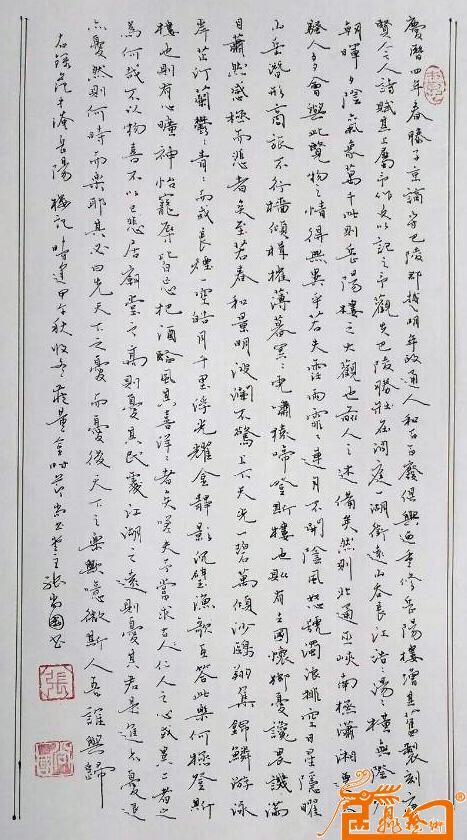 慶曆四年春滕子京謫守巴陵郡越明年政通人和百廢俱興迺重修岳陽樓增其舊製刻唐
賢今人詩賦其上屬予作文以記之予觀夫巴陵勝狀在洞庭一湖銜遠山吞長江浩〻湯〻橫無際涯
朝暉夕陰氣象萬千此則岳陽樓之大觀也前人之述備矣然則北通巫峽南極瀟湘遷客
騷人多會與此覽物之情得無異乎若夫霪雨霏〻連月不開陰風怒號濁浪排空日星隱曜
山岳潛形商旅不行檣傾楫摧薄暮冥〻虎嘯猿啼登斯樓也則有去國懷鄉憂讒畏譏滿
目蕭然感極而悲者矣至若春和景明波瀾不驚上下天光一碧萬傾沙鷗翔集錦鱗游泳
岸芷汀蘭鬱〻青〻而或長煙一空皓月千里浮光耀金靜影沉璧漁歌互答此樂何極登斯
樓也則有心曠神怡寵辱皆忘把酒臨風其喜洋〻者矣嗟夫予嘗求古仁人之心或異二者之
為何哉不以物喜不以己悲居廟堂之高則憂其民處江湖之遠則憂其君是進亦憂退
亦憂然則何時而樂耶其必曰先天下之憂而憂後天下之樂樂歟噫微斯人吾誰與歸
右錄范仲淹岳陽樓記時逢甲午秋收冬藏金時節張尚國書
張